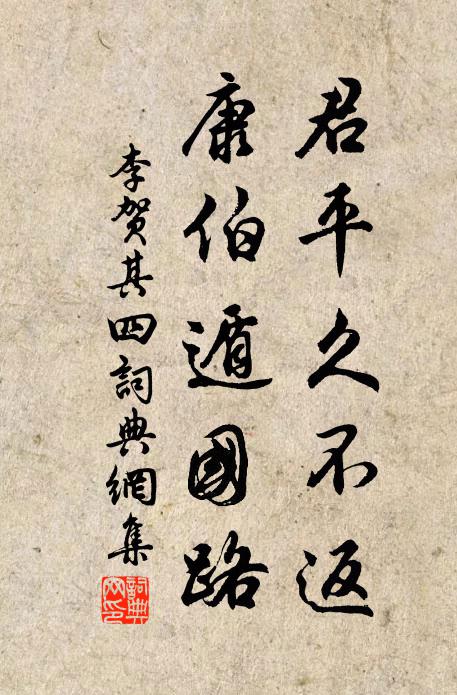 君平久不返
康伯遁國路
李贺其四詞典網集
詞典网印